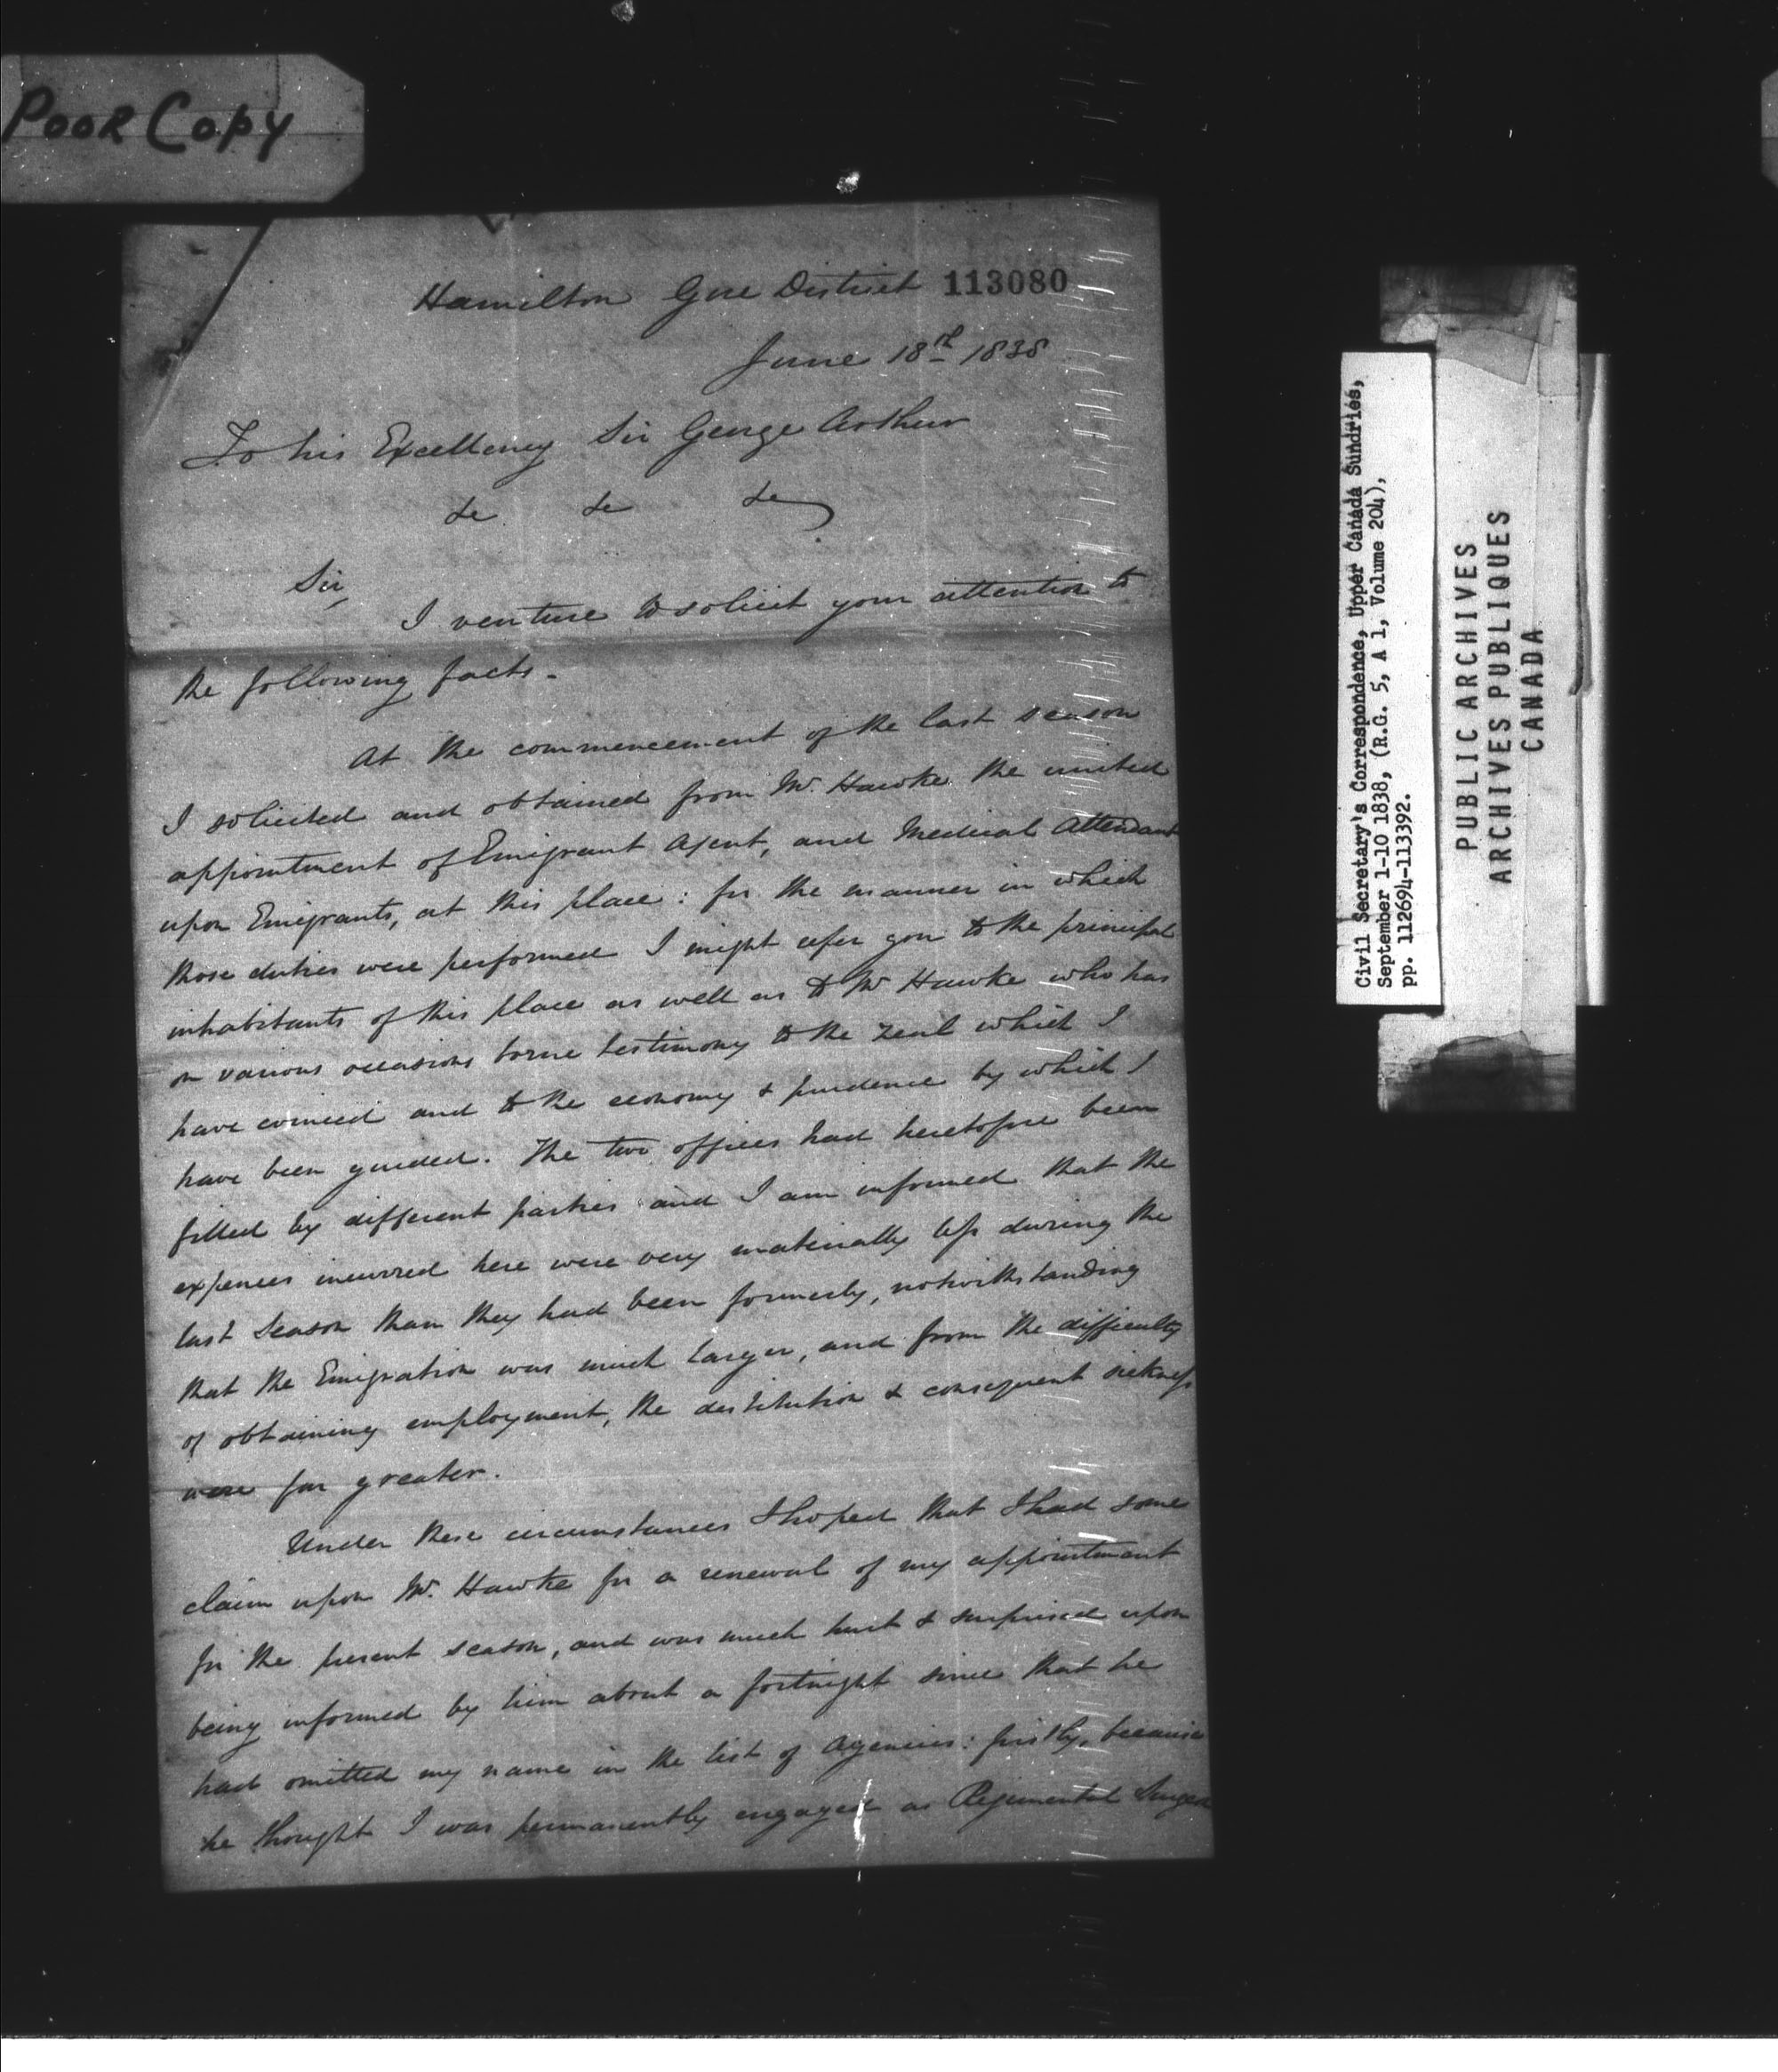 Poor Copy
Hamilton Gore District 113080
June 18th 1838
To his Excellency Sir George Arthur
&c &c &c
Sir,
I venture to solicit your attention to
the following facts.
At the commencement of the last season
I solicited and obtained from Mr. Hawke the united
appointment of Emigrant Agent, and Medical Attendant
upon Emigrants, at this place: for the manner in which
those duties were performed I might refer you to the principal
inhabitants of this place as well as to Mr Hawke who has
on various occasions borne testimony to the zeal which I
have evinced and to the economy & prudence by which I
have been guided. The two offices had heretofore been
filled by different parties and I am informed that the
expenses incurred here were very materially less during the
last season than they had been formerly, notwithstanding
that the Emigration was much larger, and from the difficulty
of obtaining employment, the destitution & consequent sickness
were far greater.
Under these circumstances I hoped that I had some
claim upon Mr. Hawke for a renewal of my appointment
for the present season, and was much hurt & surprised upon
being informed by him about a fortnight since that he
had omitted my name in the list of Agencies: firstly, because
he thought I was permanently engaged as Regimental Surgeon
Civil Secretary's Correspondence, Upper Canada Sundries,
September 1-10 1838, (R.G. 5, A 1, Volume 204),
pp. 112694-113392.
PUBLIC ARCHIVES
ARCHIVES PUBLIQUES
CANADA